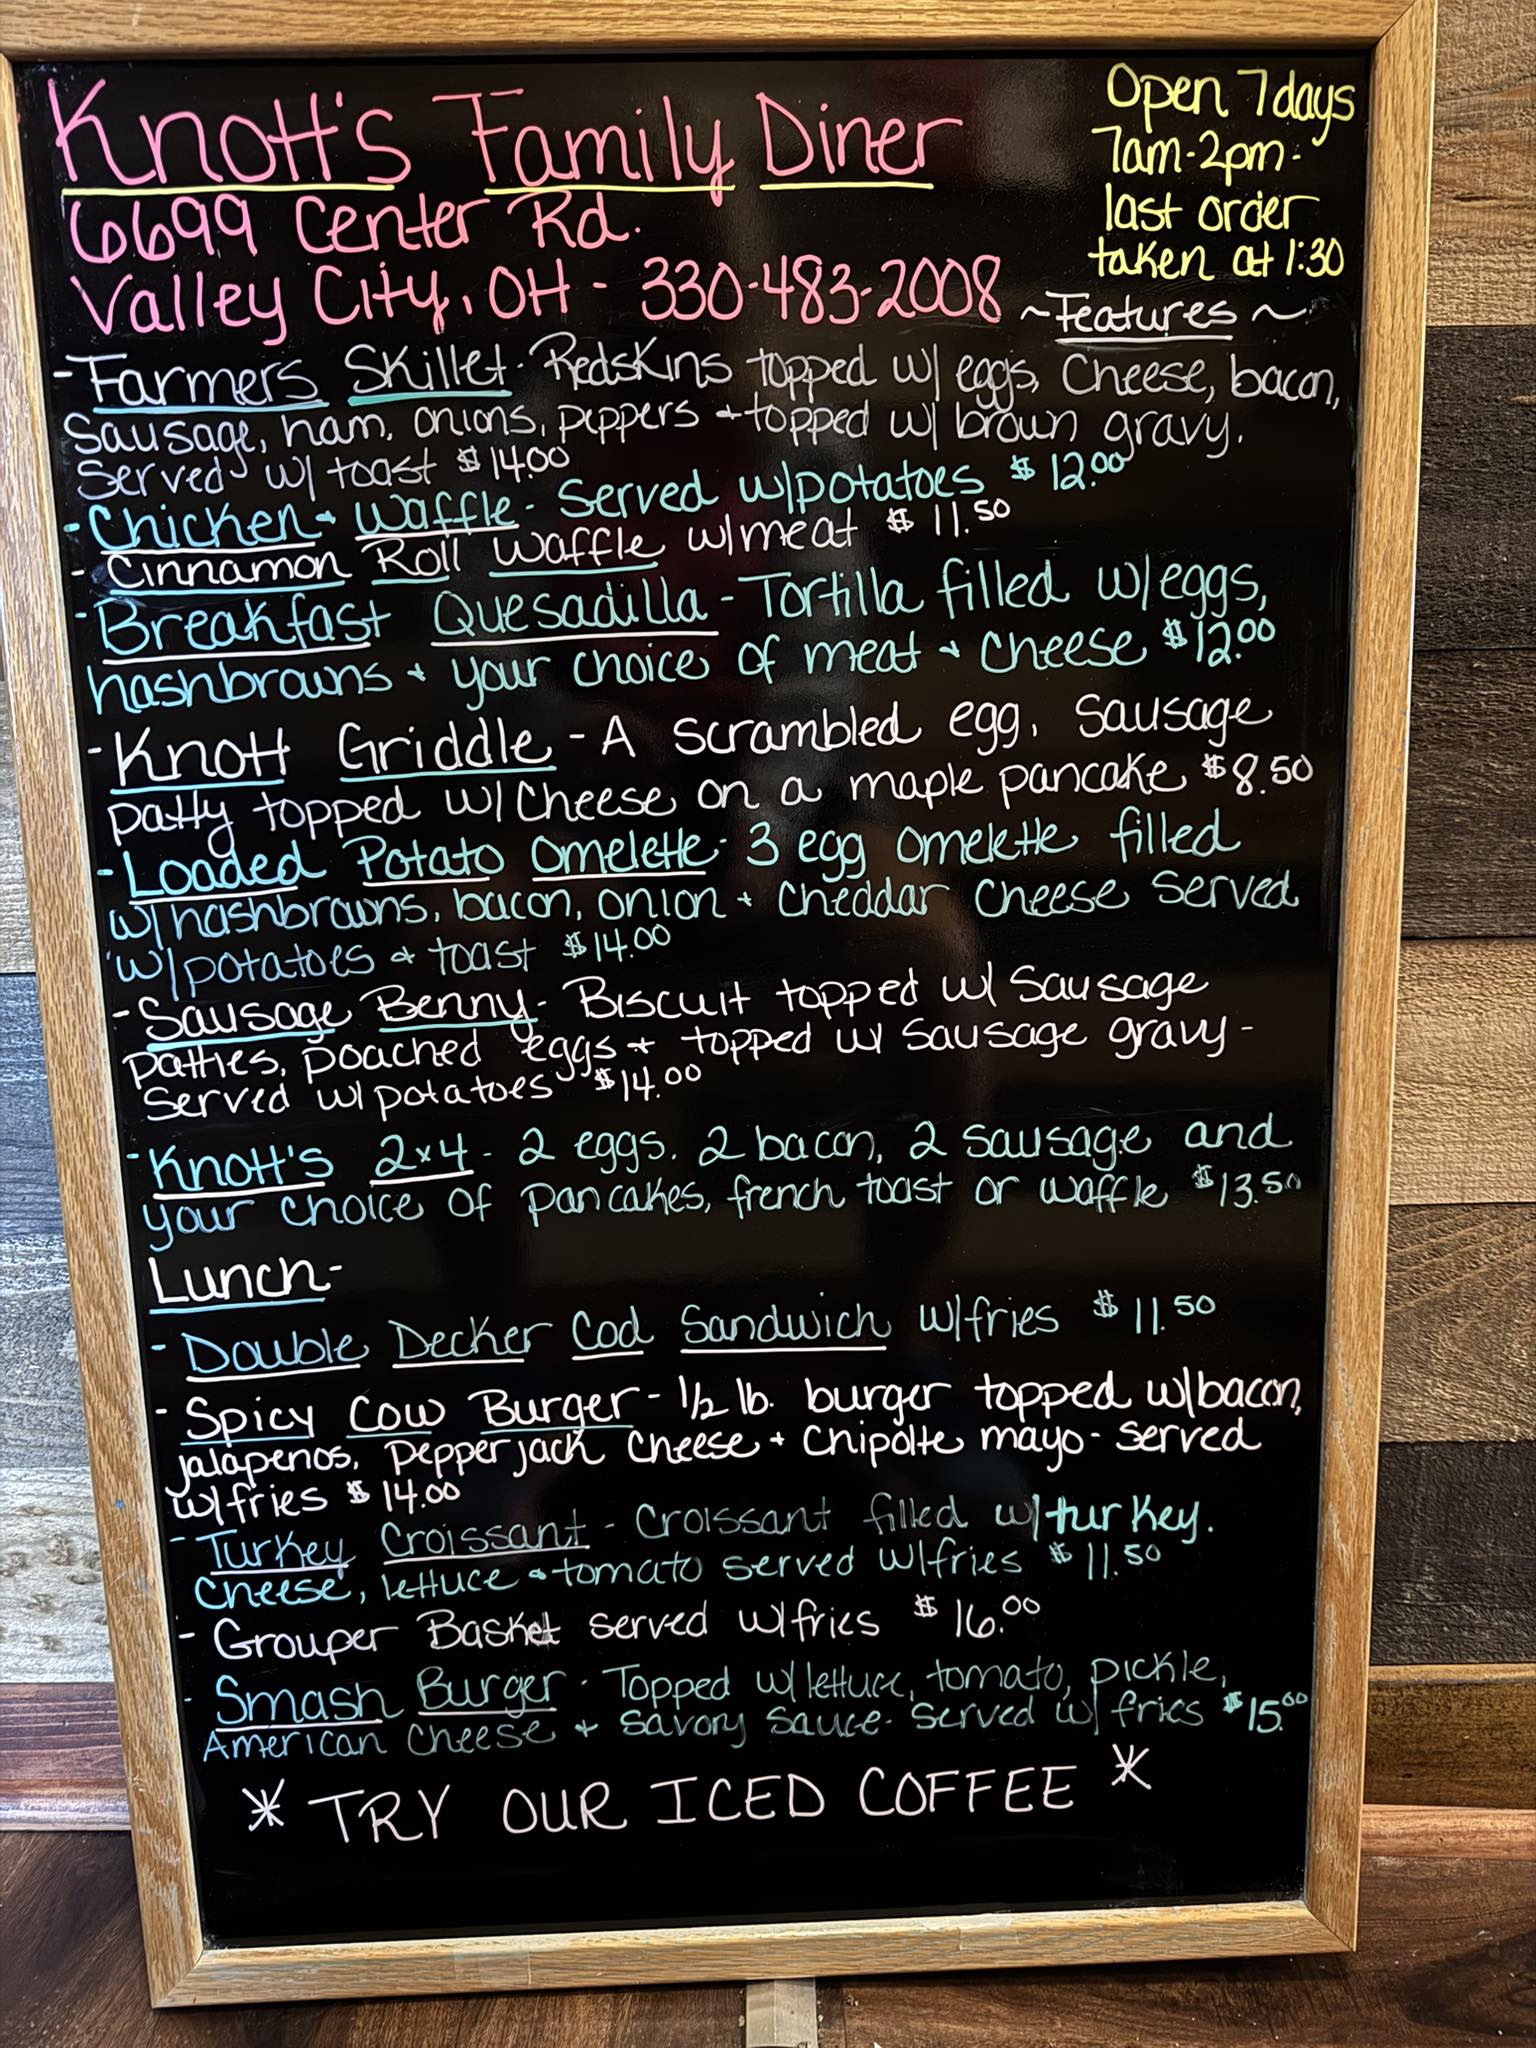 Knott's Family Diner
6699 Center Rd.
Valley City, OH - 330-483-2008
Open 7 days
7am-2pm-
last order
taken at 1:30
~Features~
-Farmers Skillet- Redskins topped w/ eggs, cheese, bacon,
sausage, ham, onions, peppers + topped w/ brown gravy.
Served w/ toast $14.00
-Chicken + Waffle- Served w/potatoes $12.00
-Cinnamon Roll Waffle w/meat $11.50
-Breakfast Quesadilla - Tortilla filled w/eggs,
hashbrowns + your choice of meat + cheese $12.00
-Knott Griddle - A scrambled egg, sausage
patty topped w/cheese on a maple pancake $8.50
-Loaded Potato Omelette- 3 egg omelette filled
w/hashbrowns, bacon, onion + cheddar cheese served
w/potatoes + toast $14.00
-Sausage Benny- Biscuit topped w/ sausage
patties, poached eggs + topped w/ sausage gravy-
Served w/potatoes $14.00
-Knott's 2x4- 2 eggs, 2 bacon, 2 sausage and
your choice of pancakes, french toast or waffle $13.50
Lunch-
-Double Decker Cod Sandwich w/fries $11.50
-Spicy Cow Burger- 1/2 lb. burger topped w/bacon,
jalapenos, pepper jack cheese + chipolte mayo- served
w/fries $14.00
-Turkey Croissant- Croissant filled w/turkey.
cheese, lettuce + tomato served w/fries $11.50
-Grouper Basket served w/fries $16.00
-Smash Burger- Topped w/lettuce, tomato, pickle,
American cheese + savory sauce- served w/ fries $15.00
* TRY OUR ICED COFFEE *